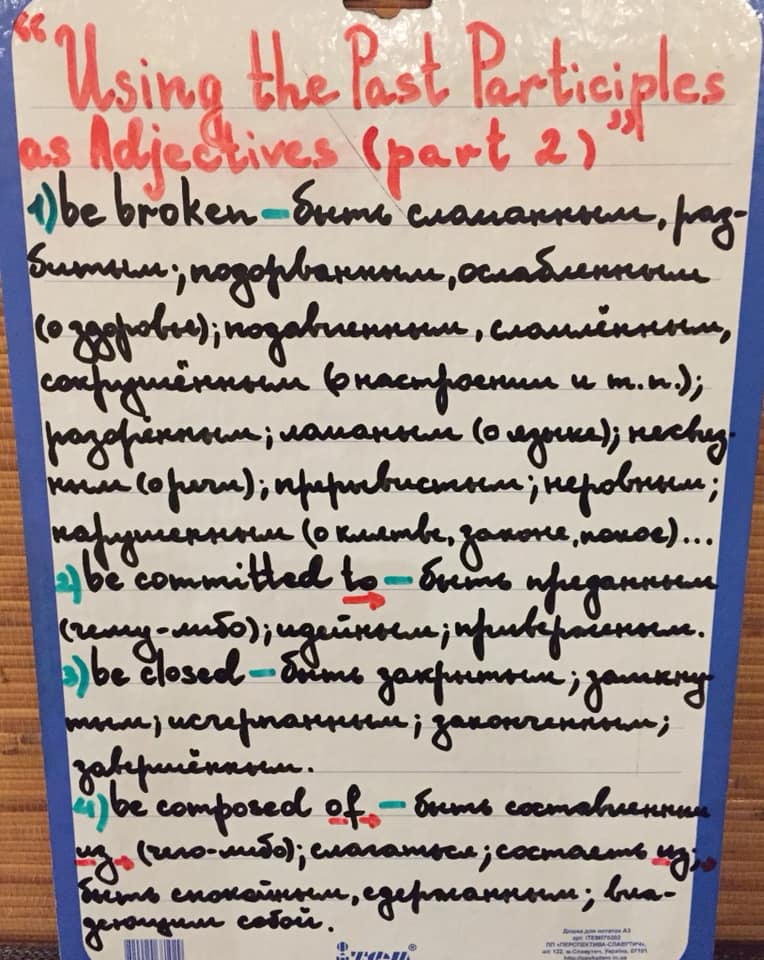 “Using the Past Participles
as Adjectives (part 2)”
1) be broken – быть сломанным, раз-
битым; подорванным, ослабленным
(о здоровье); подавленным, сломлённым,
сокрушённым (о настроении и т.п.);
разорённым; ломаным (о языке); несвяз-
ным (о речи); прерывистым; неровным;
нарушенным (о клятве, законе, покое)...
2) be committed to – быть преданным
(чему-либо); идейным; приверженым.
3) be closed – быть закрытым; замкну-
тым; исчерпанным; законченным;
завершённым.
4) be composed of – быть составленным
из (чего-либо); слагаться; состоять из;
быть спокойным, сдержанным; вла-
деющим собой.
iTEM®
Дошка для нотаток А3
арт. iTEM070202
ПП «ПЕРСПЕКТИВА-СЛАВУТИЧ»,
а/с 122, м.Славутич, Україна, 07101